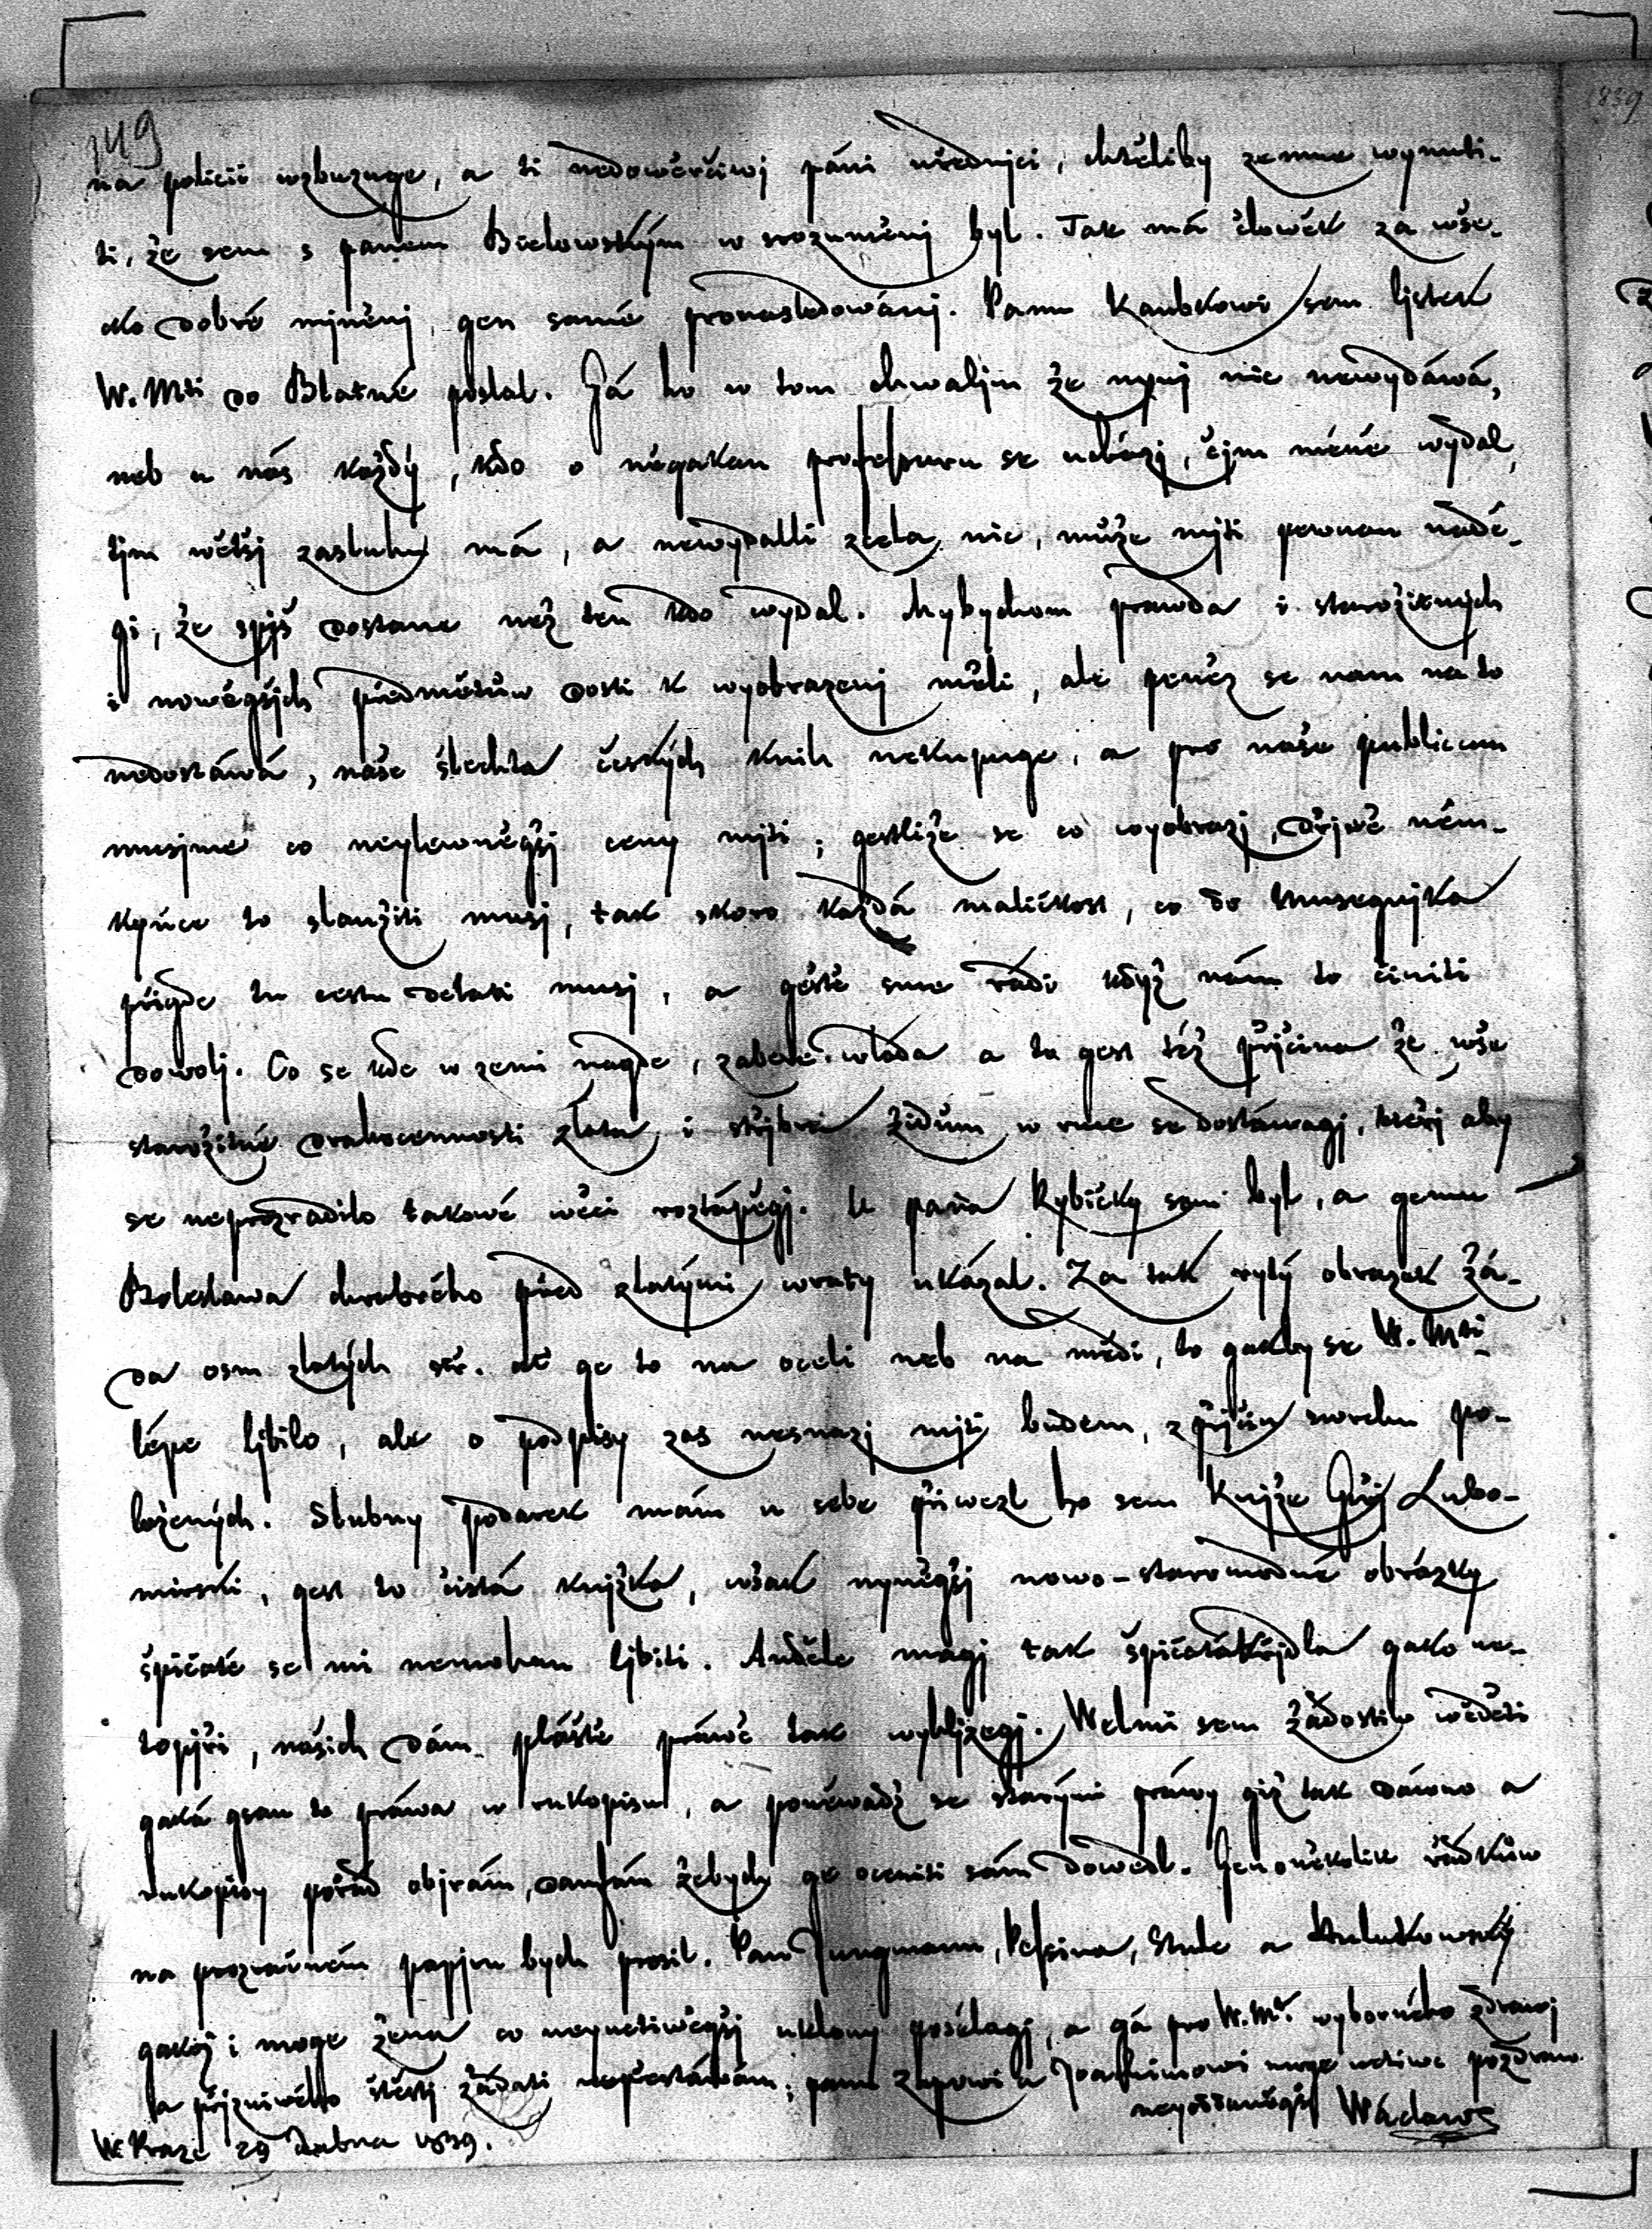 149
1839
na policii wzbuzuge, a ti nedowěrčiwj páni uřednjci, chtěliby zemne wynuti-
ti, že sem s panem Bielowským w srozuměnj byl. Tak má člowěk za wše-
cko dobré mjněnj, gen samé pronasledowánj. Panu Kaubkowi sem ljstek
W. Mti do Blatné poslal. Gá ho w tom chwaljm že nynj nic newydáwá,
neb u nás každý, kdo o něgakau professuru se uchází, čjm méně wydal,
tjm wětšj zasluhu má, a newydalli zcela nic, může mjti pewnau nadě-
gi, že spjš dostane než ten kdo wydal. Mybychom prawda i starožitných
i nowěgšjch předmětůw dosti k wyobrazenj měli, ale peněz se nam na to
nedostáwá, naše šlechta českých knih nekupuge, a pro naše publicum
musjme co neylewněgšj ceny mjti; gestliže se co wyobrazj, dřjwě něm-
kyňce to slaužiti musj, tak skoro každá maličkost, co do Musegnjka
přigde tu cestu dělati musj, a gěště sme rádi když nám to činiti
dowolj. Co se kde w zemi nagde, zabere wláda a to gest též přjčina že wše
starožitné drahocennosti zlata i střjbra židům w ruce se dostáwagj, kteřj aby
se neprozradilo takowé wěci roztápěgj. U pana Rybičky sem byl, a gemu
Boleslawa chrabrého před zlatými wraty ukázal. Za tak rytý obrazek žá-
da osm zlatých stř. ať ge to na oceli neb na mědi, to gakby se W. Mti
lépe ljbilo, ale o podpisy zas nesnazj mjti budem, z přjčin swrchu po-
ložených. Slubny podarek mám u sebe přiwezl ho sem Knjže Giřj Lubo-
mirski, gest to čistá knjžka, wšak nyněgšj nowo-staromodné obrázky
špičaté se mi nemohau ljbiti. Anděle magj tak špičatá křjdla gako ne-
topjři, našich dám pláště práwě tak wyhljžegj. Welmi sem žádostiw wěděti
gaká gsau to práwa w rukopisu, a poněwadž se starými práwy giž tak dáwno a
rukopisy pořád objrám, daufám žebych ge oceniti sám dowedl. Gen o několik řádkůw
na prozračném papjru bych prosil. Pan Jungmann, Pessina, Štulc a Hulakowský
gakož i moge žena co neyuctiwěgšj uklony posélagj, a gá pro W. Mt wyborného zdrawj
a přjzniwého štěstj žádati nepřestáwám; panu Zupowi a Joachimowi moge uctiwe pozdraw
neyoddaněgšj Wáclaw
W Praze 29 Dubna 1839.